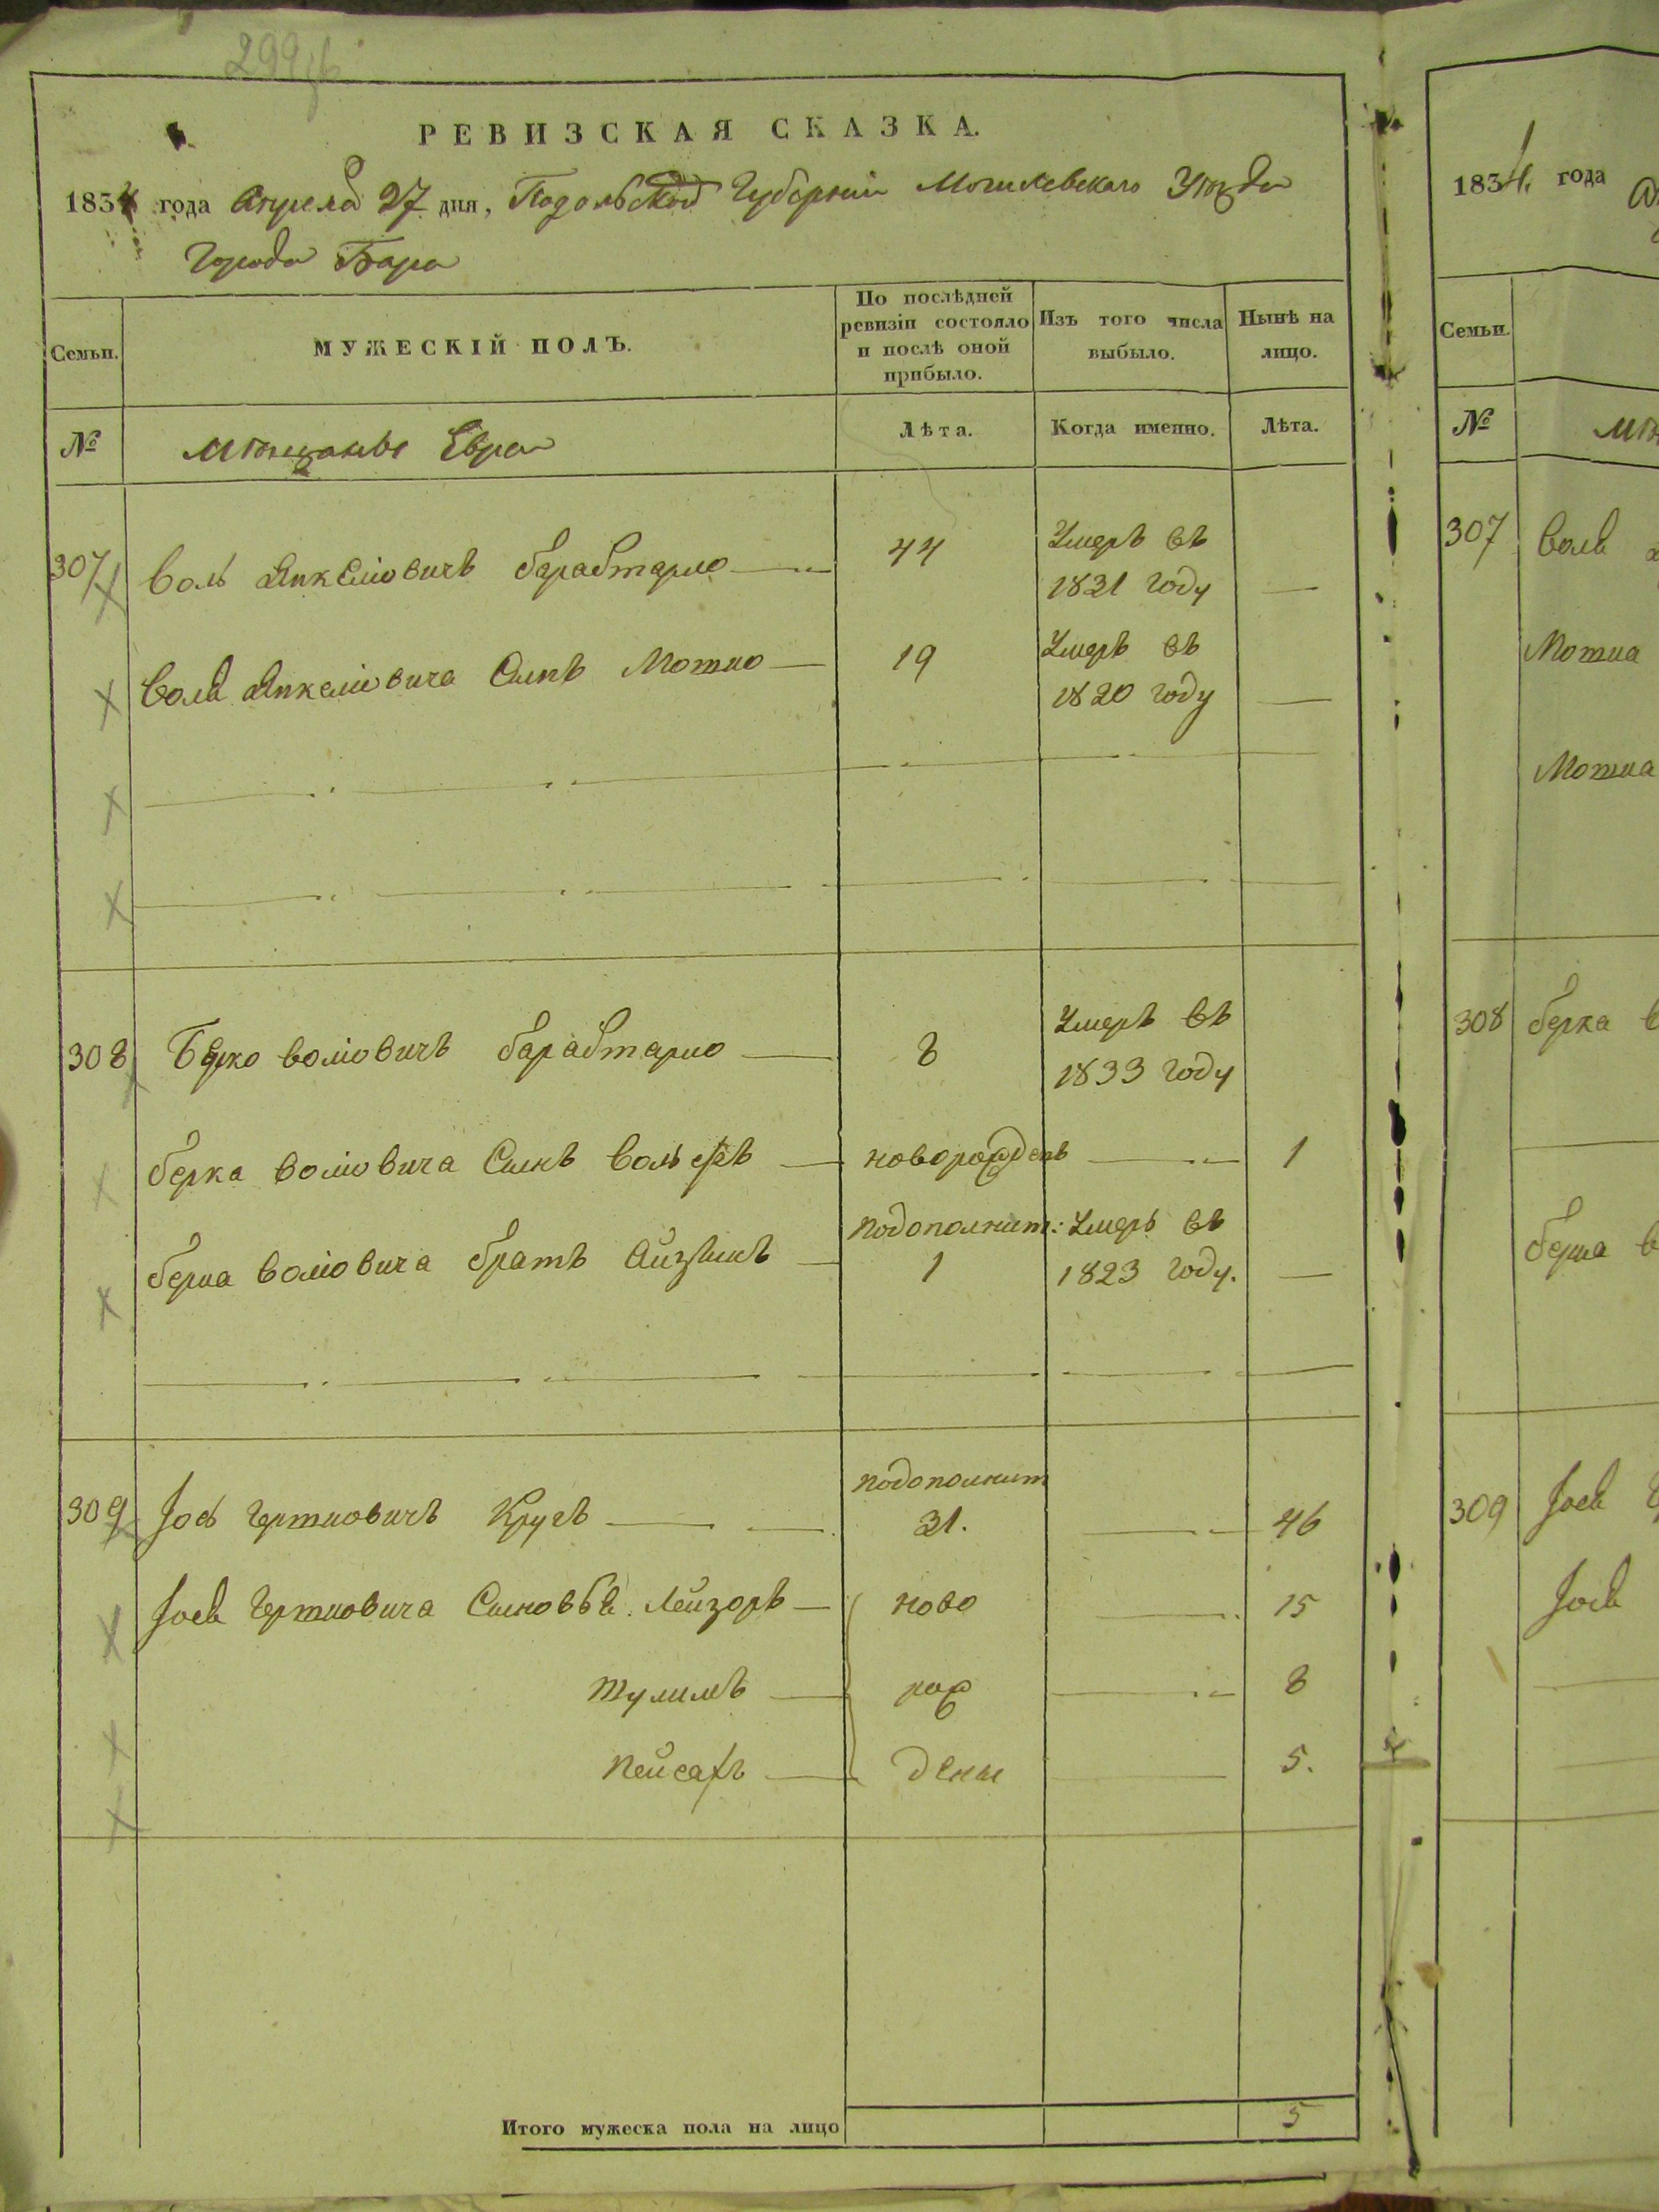 299
РЕВИЗСКАЯ СКАЗКА.
1834 года Апреля 27 дня, Подольской Губернии Могилевскаго Уѣзда
Города Бара
Семьи. МУЖЕСКІЙ ПОЛЪ. По послѣдней ревизіи состояло и послѣ оной прибыло. Изъ того числа выбыло. Нынѣ на лицо.
№ мѣщанъе Евреи Лѣта. Когда именно. Лѣта.
307 Воль Янкеліовичъ 44 Умеръ въ 1831 году —
Воля Янкеліовича Сынъ Мотио — 19 Умеръ въ 1820 году —
308 Берко Воліовичъ — 8 Умеръ въ 1833 году
берка Воліовича Сынъ Вольфъ — новорожденъ — 1
Воліовича братъ Айзикъ — подополнит: 1 Умеръ въ 1823 году. —
309 Іось Кругъ — подополнит 31. — 46
Іося Сыновья Лейзоръ — ново — 15
— рож — 8
Пейсахъ — дены — 5.
Итого мужеска пола на лицо 5
1834 года
Семьи.
№
307 Воля
Мотиа
Мотиа
308 берка
309 Іося
Іося